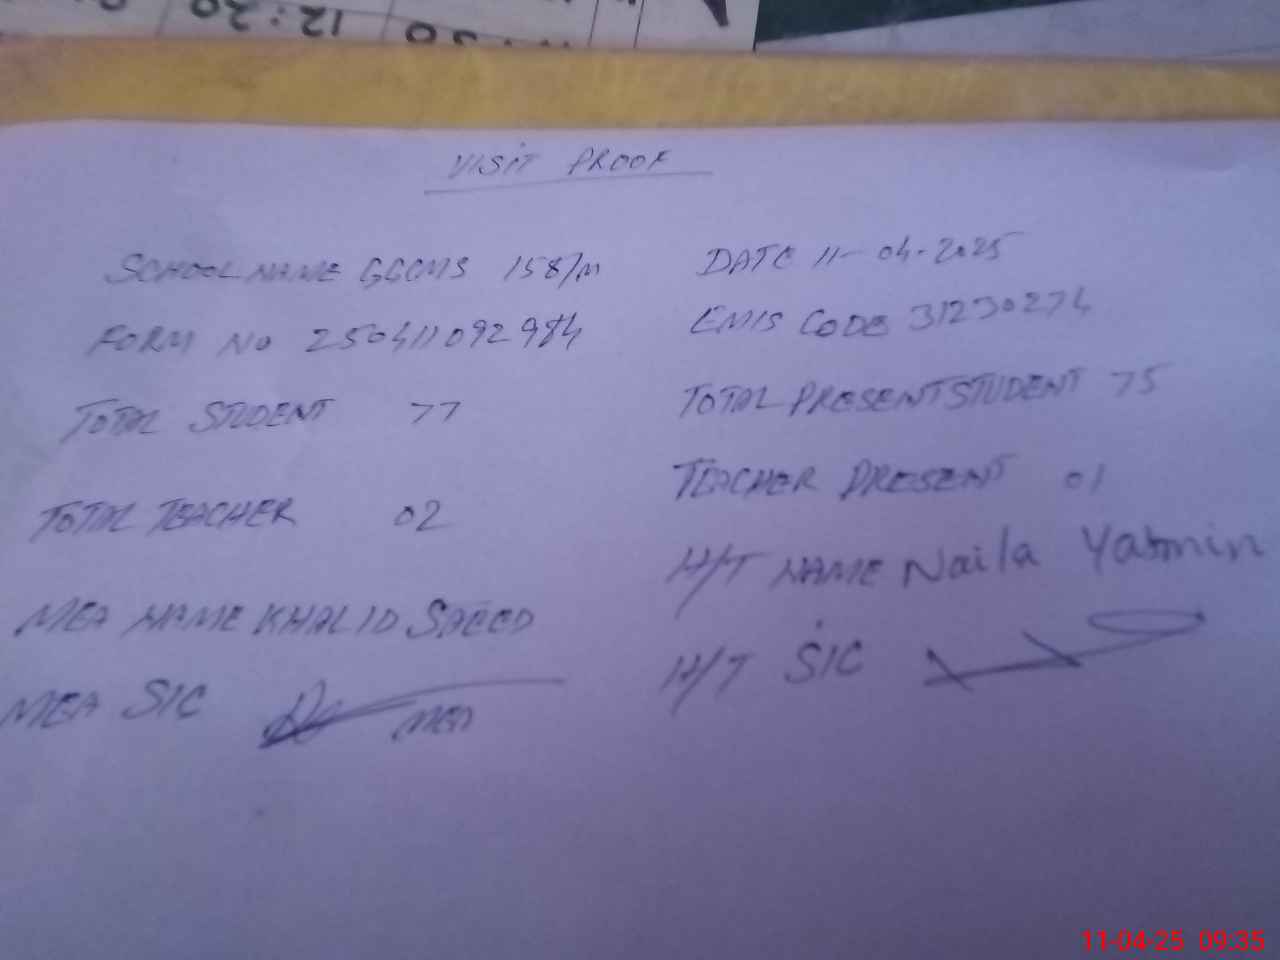 12:20
VISIT PROOF
SCHOOL NAME GGCMS 158/M DATE 11-04-2025
FORM NO 250411092984 EMIS CODE 31230274
TOTAL STUDENT 77 TOTAL PRESENT STUDENT 75
TOTAL TEACHER 02 TEACHER PRESENT 01
MEA NAME KHALID SAEED H/T NAME Naila Yasmin
MEA SIC MEA H/T SIC
11-04-25 09:35